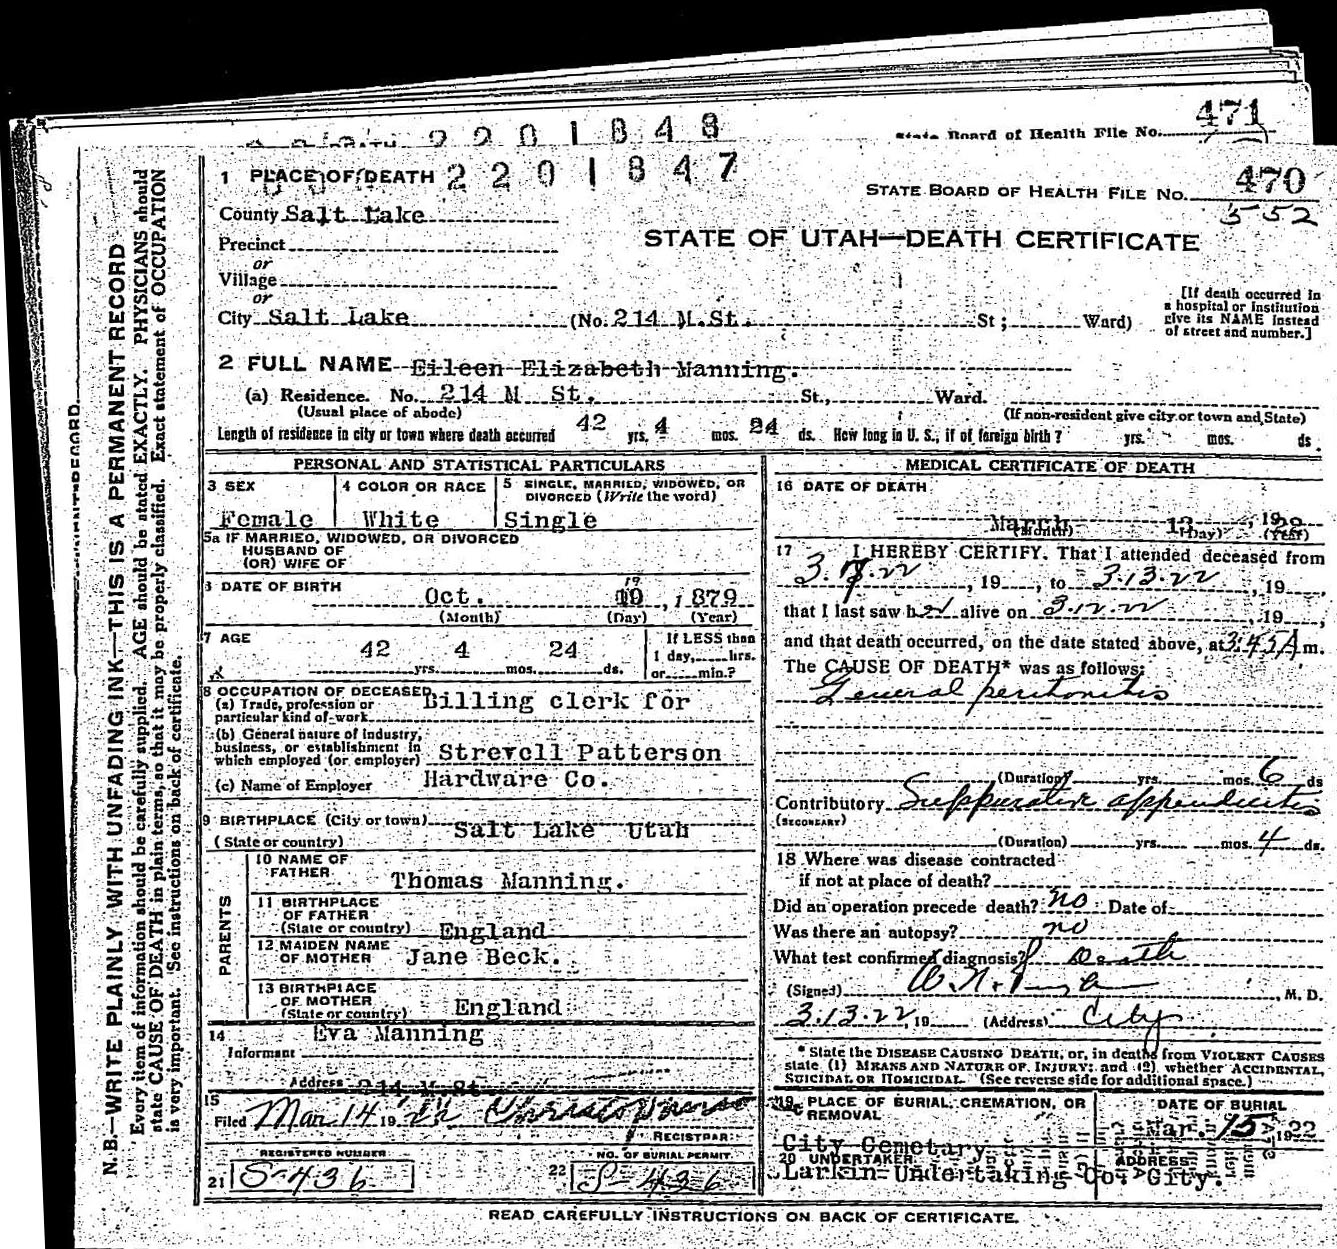 471
2201848
State Board of Health File No.
1 PLACE OF DEATH 2201847
STATE BOARD OF HEALTH FILE No. 470
552
County Salt Lake
STATE OF UTAH—DEATH CERTIFICATE
Precinct
or
Village
or
City Salt Lake (No. 214 M.St. St; Ward)
[If death occurred in
a hospital or institution
give its NAME instead
of street and number.]
2 FULL NAME Eileen Elizabeth Manning.
(a) Residence. No. 214 M St. St., Ward.
(Usual place of abode) (If non-resident give city or town and State)
Length of residence in city or town where death occurred 42 yrs. 4 mos. 24 ds. How long in U. S., if of foreign birth? yrs. mos. ds.
PERSONAL AND STATISTICAL PARTICULARS
3 SEX 4 COLOR OR RACE 5 SINGLE, MARRIED, WIDOWED, OR
DIVORCED (Write the word)
Female White Single
5a IF MARRIED, WIDOWED, OR DIVORCED
HUSBAND OF
(OR) WIFE OF
6 DATE OF BIRTH
19
Oct. 10, 1879
(Month) (Day) (Year)
7 AGE If LESS than
42 4 24 1 day, hrs.
yrs. mos. ds. or min.?
8 OCCUPATION OF DECEASED
(a) Trade, profession or
particular kind of work Billing clerk for
(b) General nature of industry,
business, or establishment in
which employed (or employer) Strevell Patterson
(c) Name of Employer Hardware Co.
9 BIRTHPLACE (City or town) Salt Lake Utah
(State or country)
PARENTS
10 NAME OF
FATHER Thomas Manning.
11 BIRTHPLACE
OF FATHER
(State or country) England
12 MAIDEN NAME
OF MOTHER Jane Beck.
13 BIRTHPLACE
OF MOTHER
(State or country) England
14 Eva Manning
Informant
Address 214 M St.
15
Filed Mar 14 19
REGISTRAR
REGISTERED NUMBER NO. OF BURIAL PERMIT
21 S-436 22 S-436
MEDICAL CERTIFICATE OF DEATH
16 DATE OF DEATH
March 13, 1922
(Month) (Day) (Year)
17 I HEREBY CERTIFY. That I attended deceased from
3.7.22, 19 , to 3.13.22, 19 ,
that I last saw her alive on 3.12.22, 19 ,
and that death occurred, on the date stated above, at 3:45 A m.
The CAUSE OF DEATH* was as follows:
General peritonitis
(Duration) yrs. mos. 6 ds
Contributory Suppurative appendicitis
(SECONDARY)
(Duration) yrs. mos. 4 ds.
18 Where was disease contracted
if not at place of death?
Did an operation precede death? no Date of
Was there an autopsy? no
What test confirmed diagnosis? Death
(Signed) , M. D.
3.13.22, 19 (Address) City
* State the DISEASE CAUSING DEATH, or, in deaths from VIOLENT CAUSES
state (1) MEANS AND NATURE OF INJURY; and (2) whether ACCIDENTAL,
SUICIDAL OR HOMICIDAL. (See reverse side for additional space.)
19 PLACE OF BURIAL, CREMATION, OR
REMOVAL
DATE OF BURIAL
City Cemetary Mar. 15 1922
20 UNDERTAKER ADDRESS
Larkin Undertaking Co. City.
READ CAREFULLY INSTRUCTIONS ON BACK OF CERTIFICATE.
N.B.—WRITE PLAINLY WITH UNFADING INK—THIS IS A PERMANENT RECORD
Every item of information should be carefully supplied. AGE should be stated EXACTLY. PHYSICIANS should
state CAUSE OF DEATH in plain terms, so that it may be properly classified. Exact statement of OCCUPATION
is very important. (See instructions on back of certificate.